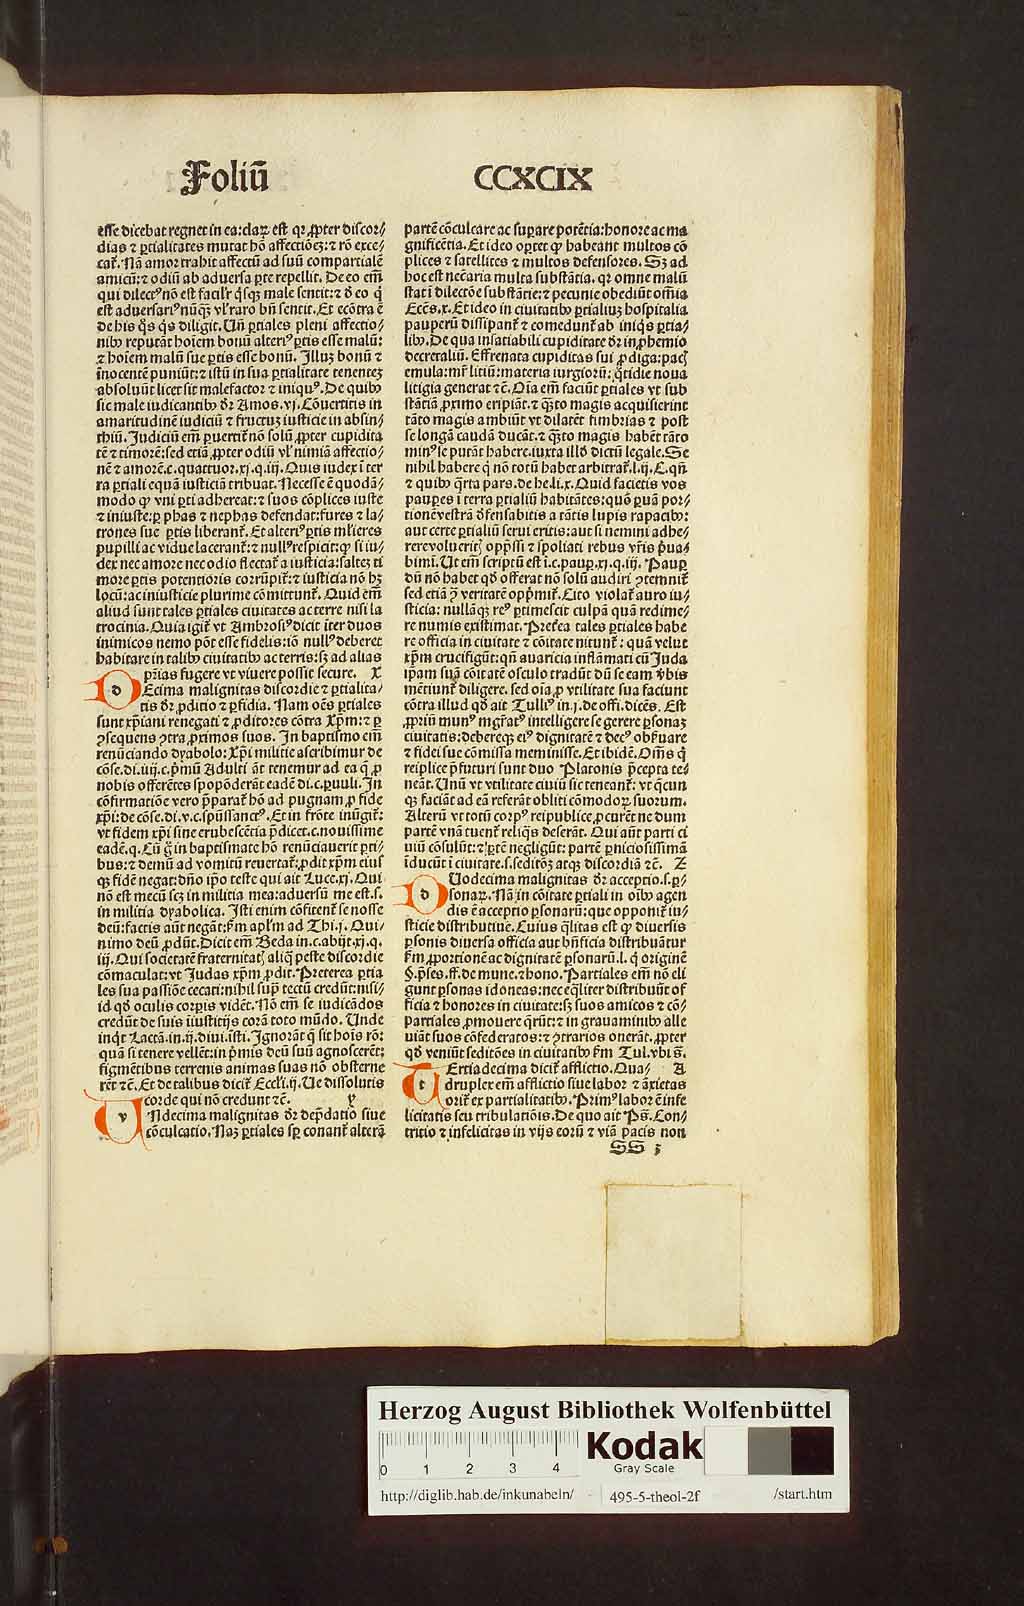 Foliū CCXCIX
esse dicebat regnet in ea: claꝝ est qꝛ ꝓpter discor⸗
dias ⁊ ꝑtialitates mutat hō affectiōeꝫ: ⁊ rō exce⸗
cat᷑. Nā amor trahit affectū ad suū compartialē
amicū: ⁊ odiū ab aduersa ꝑte repellit. De eo em̄
qui dilectꝰ nō est facil'r q̇sqꝫ male sentit: ⁊ đ eo q̇
est aduersariꝰ nūqꝫ vl' raro bn̄ sentit. Et ecōtra ē
de his q̇s q̇s diligit. Un̄ ꝑtiales pleni affectio⸗
nibꝰ reputāt hoīem bonū alteriꝰ ꝑtis esse malū:
⁊ hoīem malū sue ꝑtis esse bonū. Illuꝫ bonū ⁊
īnocentē puniūt: ⁊ istū in sua ꝑtialitate tenenteꝫ
absoluūt licet sit malefactor ⁊ iniquꝰ. De quibꝰ
sic male iudicantibꝰ dr̄ Amos. vj. Cōuertitis in
amaritudinē iudiciū ⁊ fructuꝫ iusticie in absin⸗
thiū. Judiciū em̄ ꝑuertit᷑ nō solū ꝓpter cupidita
tē ⁊ timorē: sed etiā ꝓpter odiū vl' nimiā affectio⸗
nē ⁊ amorē. c. quattuor. xj. q. iij. Quis iudex ī ter
ra ꝑtiali equā iusticiā tribuat. Necesse ē quodā⸗
modo ꝙ vni ꝑti adhereat: ⁊ suos cōplices iuste
⁊ iniuste: ꝑ phas ⁊ nephas defendat: fures ⁊ la⸗
trones sue ꝑtis liberant᷑. Et alteriꝰ ꝑtis ml'ieres
pupilli ac vidue lacerant᷑: ⁊ nullꝰ respicit: ꝙ si iu⸗
dex nec amore nec odio flectat᷑ a iusticia: salteꝫ ti
more ꝑtis potentioris corrūpit᷑: ⁊ iusticia nō hꝫ
locū: ac iniusticie plurime cōmittunt᷑. Quid em̄
aliud sunt tales ꝑtiales ciuitates ac terre nisi la
trocinia. Quia igit᷑ vt Ambrosiꝰ dicit iter duos
inimicos nemo pōt esse fidelis: iō nullꝰ deberet
habitare in talibꝰ ciuitatibꝰ ac terris: sꝫ ad alias
ꝑ̄tias fugere vt viuere possit secure. X
d Ecima malignitas discordie ⁊ ꝑtialita⸗
tis dr̄ ꝓditio ⁊ ꝑfidia. Nam oēs ꝑtiales
sunt xp̄iani renegati ⁊ ꝓditores cōtra Xp̄m: ⁊ ꝑ
ꝯsequens ꝯtra ꝓximos suos. In baptismo em̄
renūciando dyabolo: Xp̄i militie ascribimur de
cōse. di. iiij. c. pʾmū Adulti āt tenemur ad ea q̇ ꝓ
nobis offerētes spopōderāt eadē di. c. ꝑuuli. In
cōfirmatiōe vero p̄parat᷑ hō ad pugnam ꝓ fide
xp̄i: de cōse. di. v. c. spūssanctꝰ. Et in frōte inūgit᷑:
vt fidem xp̄i sine erubescētia p̄dicet. c. nouissime
eadē. q. Cū g̊ in baptismate hō renūciauerit ꝑti⸗
bus: ⁊ demū ad vomitū reuertat᷑: ꝓdit xp̄m eius
qꝫ fidē negat: dn̄o ip̄o teste qui ait Luce. xj. Qui
nō est mecū scꝫ in militia mea: aduersū me est. s.
in militia dyabolica. Isti enim cōfitent᷑ se nosse
deū: factis aūt negāt: ẜm apl'm ad Thi. j. Qui⸗
nimo deū ꝓdūt. Dicit em̄ Beda in. c. abijt. xj. q.
iij. Qui societatē fraternitatꝭ aliq̇ peste discordie
cōmaculat: vt Judas xp̄m ꝓdit. Preterea ꝑtia
les sua passiōe cecati: nihil sup̄ tectū credūt: nisi⸗
id qđ oculis corꝑis vidēt. Nō em̄ se iudicādos
credūt de suis iiustitijs corā toto mūdo. Unde
inqt Lactā. in. ij. diui. isti. Ignorāt q̇ sit hoīs rō:
quā si tenere vellēt: in pʾmis deū suū agnoscerēt:
figmētibus terrenis animas suas nō obsterne
rēt ⁊c̄. Et de talibus dicit᷑ Eccl'i. ij. Ue dissolutis
corde qui nō credunt ⁊c̄. y
v Ndecima malignitas dr̄ dep̄datio siue
cōculcatio. Naꝫ ꝑtiales sꝑ conant᷑ alterā
partē cōculcare ac suꝑare potētia: honore ac ma
gnificētia. Et ideo oꝑtet ꝙ habeant multos cō
plices ⁊ satellites ⁊ multos defensores. Sꝫ ad
hoc est necāria multa substātia. qꝛ omne malū
stat ī dilectōe substātie: ⁊ pecunie obediūt om̄ia
Ecc̄s. x. Et ideo in ciuitatibꝰ ꝑtialiuꝫ hospitalia
pauperū dissipant᷑ ⁊ comedunt᷑ ab iniq̇s ꝑtia⸗
libꝰ. De qua insatiabili cupiditate dr̄ in ꝓhemio
decretaliū. Effrenata cupiditas sui ꝓdiga: pacꝭ
emula: mr̄ litiū: materia iurgiorū: q̇tidie noua
litigia generat ⁊c̄. Oīa em̄ faciūt ꝑtiales vt sub
stātia ꝓximo eripiāt. ⁊ qꝫto magis acquisierint
tāto magis ambiūt vt dilatēt fimbrias ⁊ post
se longā caudā ducāt. ⁊ qꝫto magis habēt tāto
minꝰ se putāt habere. iuxta illđ dictū legale. Se
nihil habere q̇ nō totū habet arbitrat᷑. l. ij. C. qn̄
⁊ quibꝰ q̇rta pars. de he. li. x. Quid facietis vos
pauꝑes ī terra ꝑtialiū habitātes: quō ꝑuā por⸗
tionē vestrā đfensabitis a tātis lupis rapacibꝰ:
aut certe ꝑtialiū serui eritis: aut si nemini adhe⸗
rere volueritꝭ opp̄ssi ⁊ spoliati rebus vr̄is p̄ua⸗
bimi. Ut em̄ scriptū est ī. c. pauꝑ. xj. q. iij. Pauꝑ
dū nō habet qđ offerat nō solū audiri ꝯtemnit᷑
sed etiā ꝯͣ veritatē oppʾmit᷑. Cito violat᷑ auro iu⸗
sticia: nullāqꝫ reꝰ ꝑtimescit culpā quā redime⸗
re numis existimat. Pret̓ea tales ꝑtiales habe
re officia in ciuitate ⁊ cōitate nitunt᷑: quā velut
xp̄m crucifigūt: qn̄ auaricia inflāmati cū Juda
ip̄am suā cōitatē osculo tradūt dū se eam v̓bis
mētiunt᷑ diligere. sed oīa ꝓ vtilitate sua faciunt
cōtra illud qđ ait Tulliꝰ in. j. de offi. dicēs. Est
ꝓprīū munꝰ mgr̄atꝰ intelligere se gerere ꝑsonaꝫ
ciuitatis: debereqꝫ eiꝰ dignitatē ⁊ decꝰ obẜuare
⁊ fidei sue cōmissa meminisse. Et ibidē. Om̄s q̇
reiplice p̄futuri sunt duo Platonis p̄cepta te⸗
neāt. Unū vt vtilitatē ciuiū sic teneant᷑: vt q̇cun
qꝫ faciāt ad eā referāt obliti cōmodoꝝ suorum.
Alterū vt totū corpꝰ reipublice ꝓcurēt ne dum
partē vnā tuent᷑ reliq̇s deserāt. Qui aūt parti ci
uiū cōsulūt: ⁊ ꝑtē negligūt: partē ꝑniciosissimā
īducūt ī ciuitatē. s. seditōeꝫ atqꝫ discordiā ⁊c̄. Z
d Uodecima malignitas dr̄ acceptio. s. ꝑ⸗
sonaꝝ. Nā in cōitate ꝑtiali in oībꝰ agen
dis ē acceptio ꝑsonarū: que opponit᷑ iu⸗
sticie distributiue. Cuius q̇litas est ꝙ diuersis
ꝑsonis diuersa officia aut bn̄ficia distribuātur
ẜm ꝓportionē ac dignitatē ꝑsonarū. l. q̇ originē
§. p̄ses. ff. de mune. ⁊ hono. Partiales em̄ nō eli
gunt ꝑsonas idoneas: nec eq̇liter distribuūt of
ficia ⁊ honores in ciuitate: sꝫ suos amicos ⁊ cō⸗
partiales ꝓmouere q̇rūt: ⁊ in grauaminibꝰ alle
uiāt suos cōfederatos: ⁊ ꝯtrarios onerāt. ꝓpter
qđ veniūt seditōes in ciuitatibꝰ ẜm Tul. vbi s̄.
t Ertiadecima dicit᷑ afflictio. Qua⸗ A
druplex em̄ afflictio siue labor ⁊ āxietas
orit᷑ ex partialitatibꝰ. Primꝰ labor ē infe
licitatis seu tribulatiōis. De quo ait Ps̄. Con⸗
tritio ⁊ infelicitas in vijs eorū ⁊ viā pacis non
SS 3
Herzog August Bibliothek Wolfenbüttel
0 1 2 3 4
Kodak
Gray Scale
http://diglib.hab.de/inkunabeln/ 495-5-theol-2f /start.htm